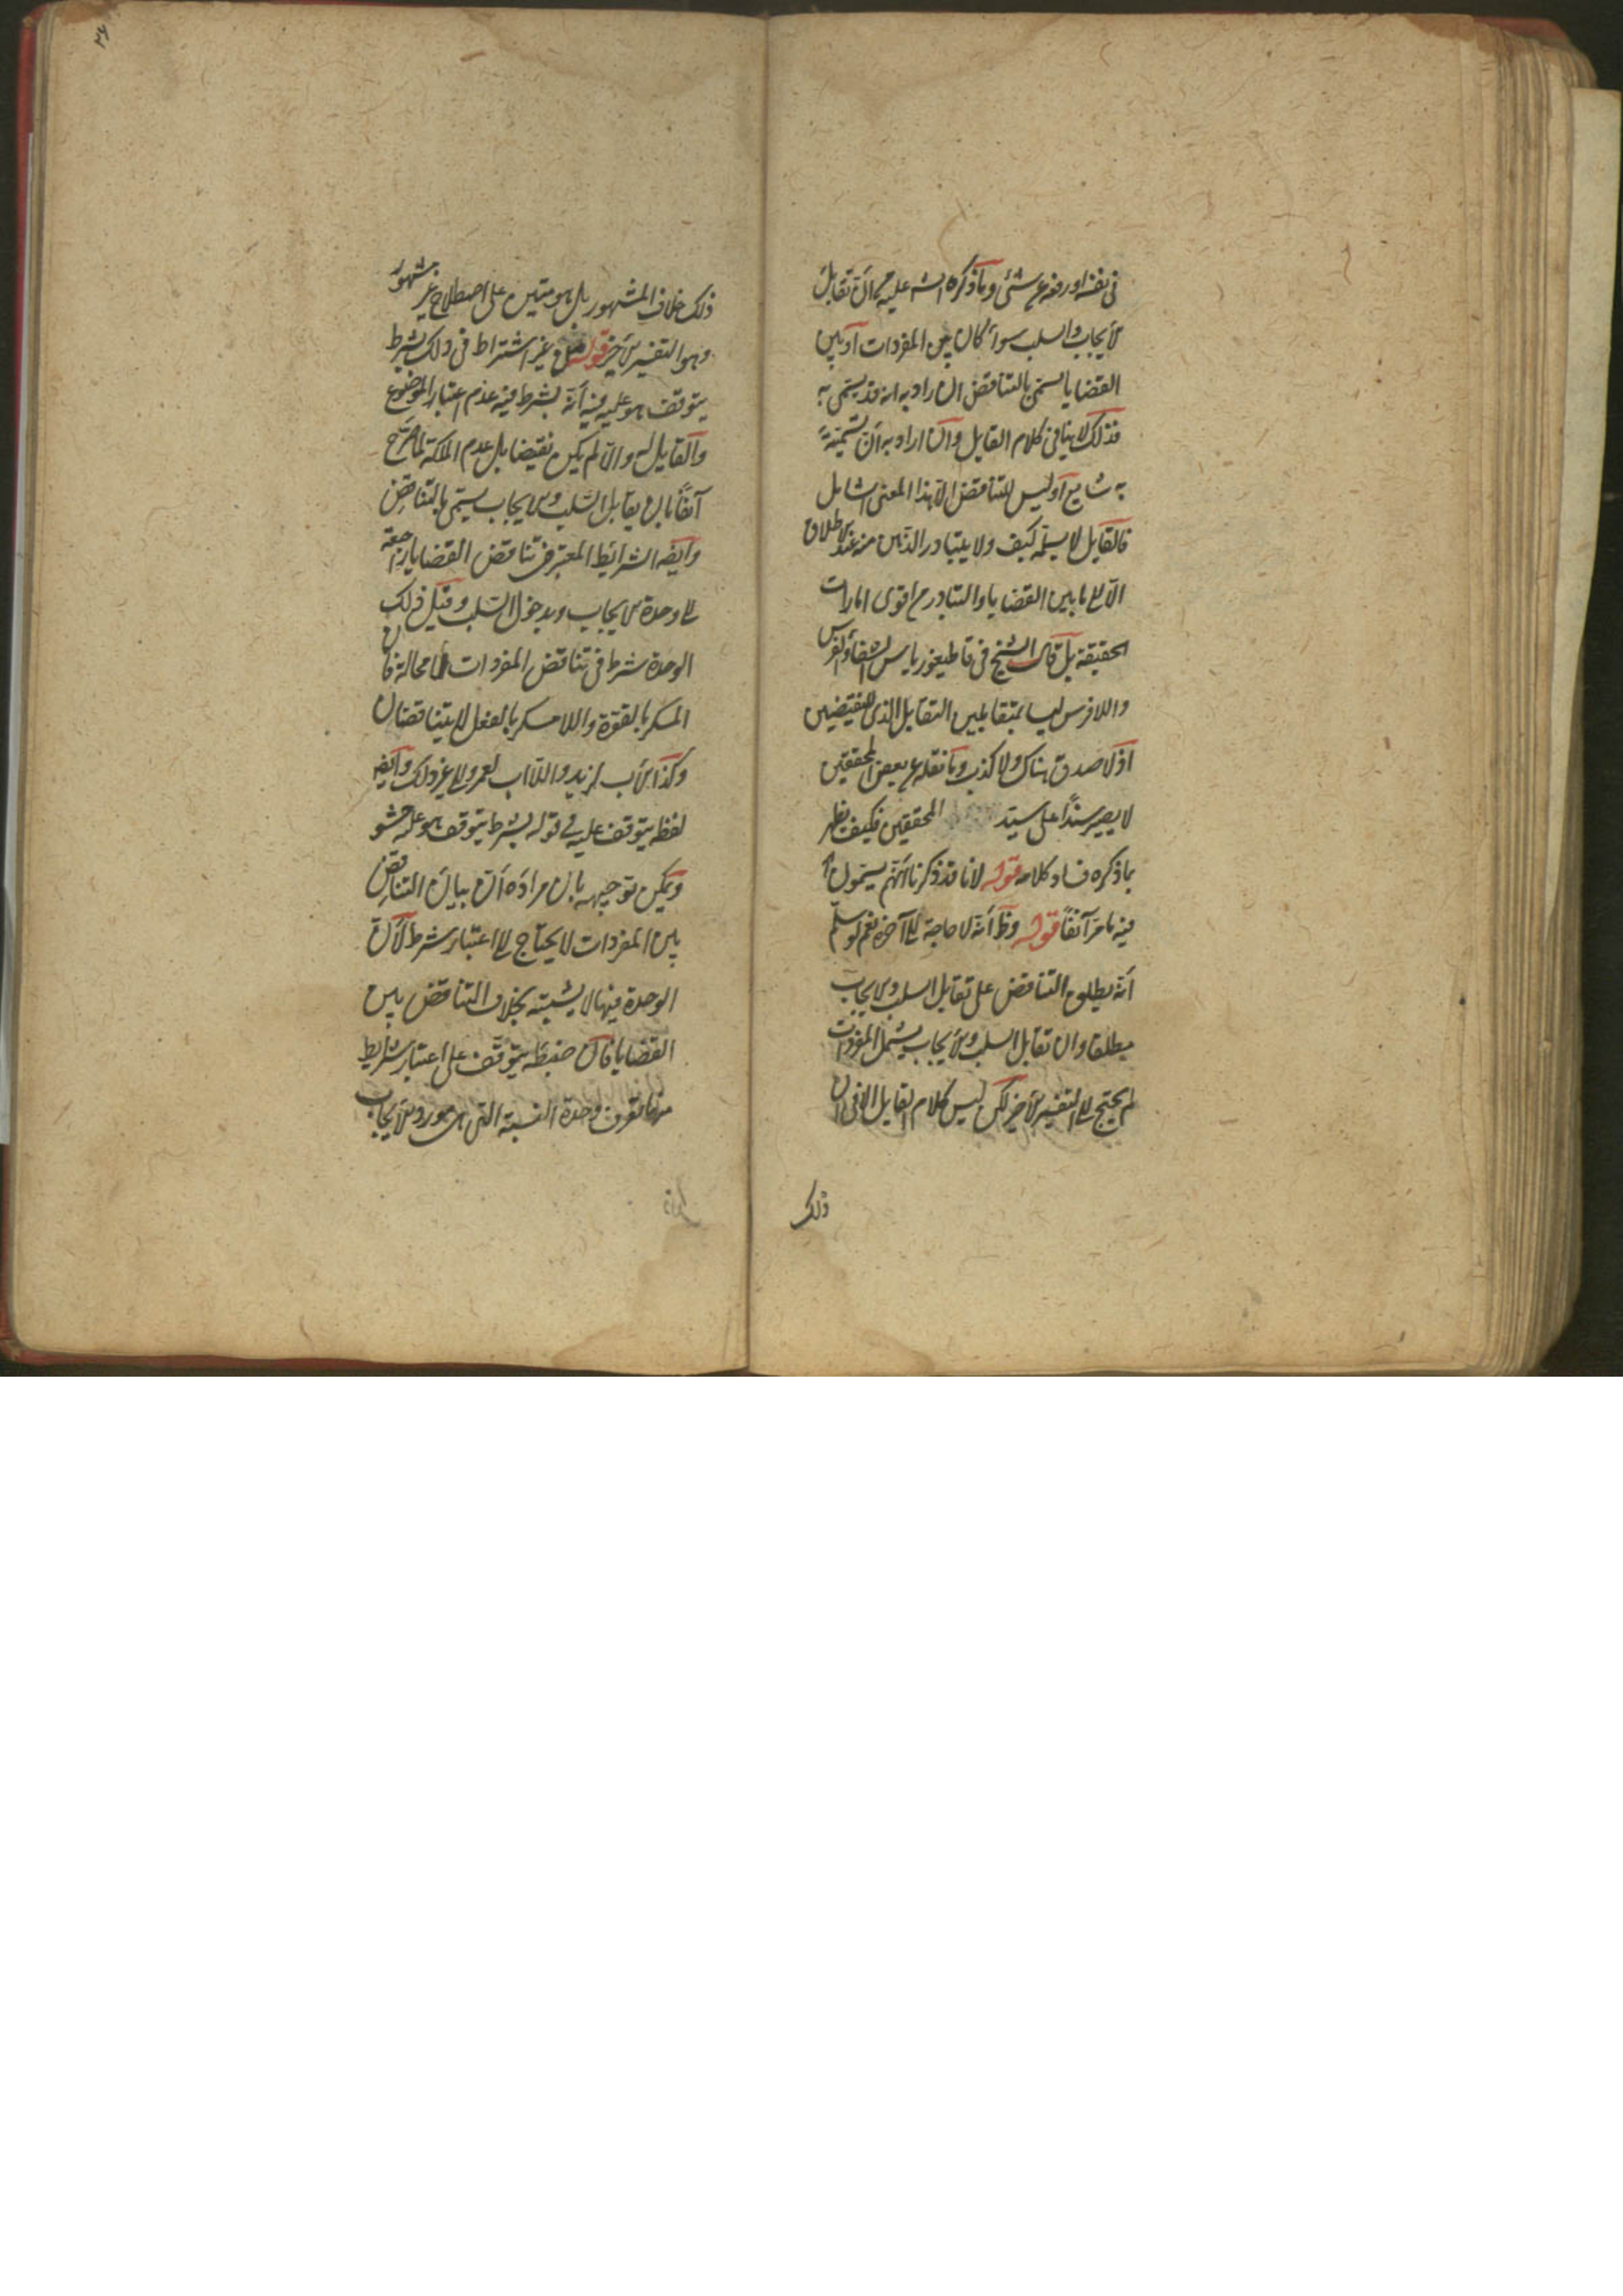 في نفسه او رفعه عن شئ وما ذكره الش عليه من ان تقابل
الايجاب والسلب سواء كان بين المفردات او بين
القضايا يسمى بالتناقض ان اراد به انه قد يسمى به
فذلك لا ينافي كلام القايل وان اراد به ان تسميته
به شايع او ليس للتناقض الا هذا المعنى الشامل
فالقايل لا يسلمه كيف ولا يتبادر الذهن منه عند الاطلاق
الا الى ما بين القضايا والتبادر من اقوى امارات
الحقيقة بل قال الشيخ في قاطيغورياس الشفاء الفرس
واللافرس ليسا بمتقابلين التقابل الذي للنقيضين
اذ لا صدق هناك ولا كذب وما نقله عن بعض المحققين
لا يصير سندا على سيد المحققين فكيف يظهر
بما ذكره فساد كلامه قوله لانا قد ذكرنا انهم يسمون
فيه ما مر آنفا قوله وظ انه لا حاجة الى آخره نعم لو سلم
انه يطلق التناقض على تقابل السلب والايجاب
مطلقا وان تقابل السلب والايجاب يشمل المفردات
لم يحتج الى التفسير الاخير لكن ليس كلام القايل الا في ان
ذلك
٢٤
ذلك خلاف المشهور بل هو مبتن على اصطلاح غير مشهور
وهو التفسير الاخير قوله من غير اشتراط في ذلك بشرط
يتوقف هو عليه فيه انه يشترط فيه عدم اعتبار الموضوع
والقابل له والا لم يكن نقيضا بل عدم الملكة لما صرح
آنفا بان تقابل السلب والايجاب يسمى بالتناقض
وايضا الشرائط المعتبرة في تناقض القضايا راجعة
الى وحدة الايجاب ومدخول السلب وقيل ذلك
الوحدة شرط في تناقض المفردات لا محالة فان
المسكر بالقوة واللامسكر بالفعل لا يتناقضان
وكذا الاب لزيد واللااب لعمرو الى غير ذلك وايضا
لفظ يتوقف عليه في قوله بشرط يتوقف هو عليه حشو
ويمكن توجيهه بان مراده ان بيان التناقض
بين المفردات لا يحتاج الى اعتبار شرط لان
الوحدة فيها لا يشتبه بخلاف التناقض بين
القضايا فان ضبطه يتوقف على اعتبار شرايط
منها تعرف وحدة النسبة التي هي مورد الايجاب